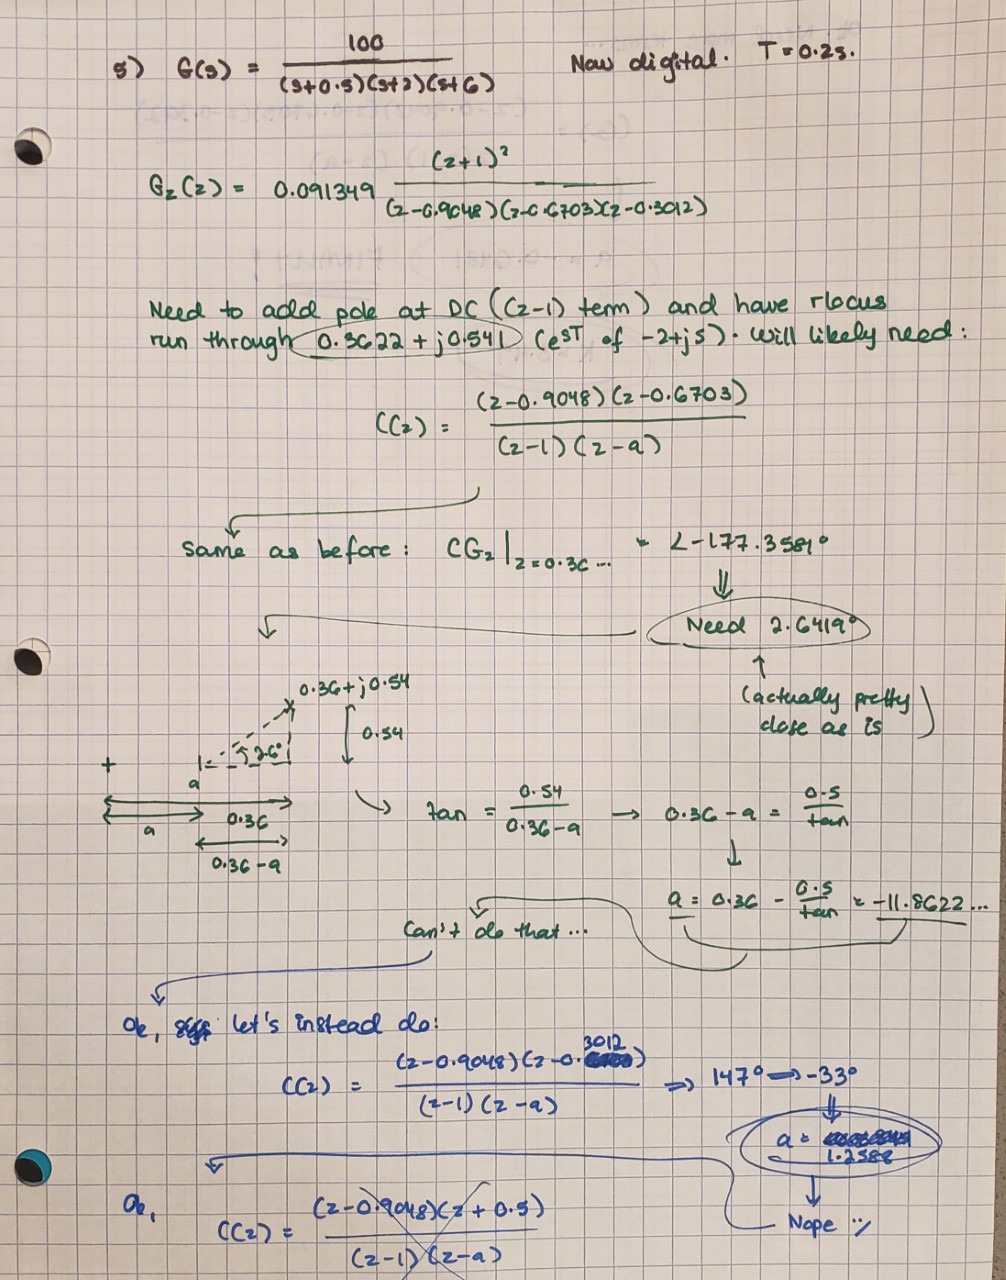 5) G(s) = 100 / (s+0.5)(s+2)(s+6)   Now digital. T=0.2s.
Gz(z) = 0.091349 (z+1)² / (z-0.9048)(z-0.6703)(z-0.3012)
Need to add pole at DC ((z-1) term) and have rlocus
run through 0.3622 + j0.541 (e^sT of -2+j5). Will likely need:
C(z) = (z-0.9048)(z-0.6703) / (z-1)(z-a)
same as before: CGz|z=0.36... = ∠-177.3581°
⇓
Need 2.6419°
↑
(actually pretty
close as is)
0.36+j0.54
0.54
2.6°
a
a
0.36
0.36-a
tan = 0.54 / 0.36-a → 0.36-a = 0.5 / tan
↓
a = 0.36 - 0.5 / tan = -11.8622...
Can't do that...
Ok, let's instead do:
C(z) = (z-0.9048)(z-0.3012) / (z-1)(z-a) ⇒ 147° → -33°
⇓
a = 1.2588
↓
Nope :/
Ok,
C(z) = (z-0.9048)(z+0.5) / (z-1)(z-a)